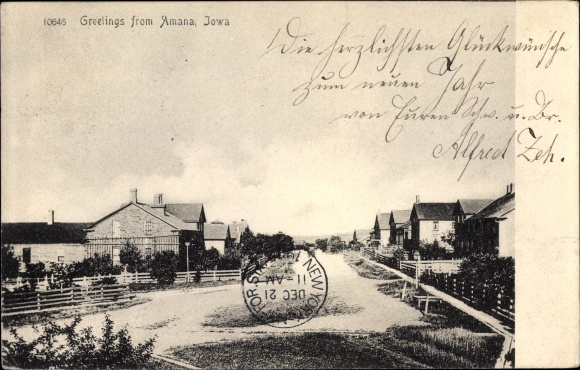 10646 Greetings from Amana, Iowa
Die herzlichsten Glückwünsche
zum neuen Jahr
von Euren Schw. u. Br.
Alfred Zeh.
NEW YORK
11-AM
DEC 21